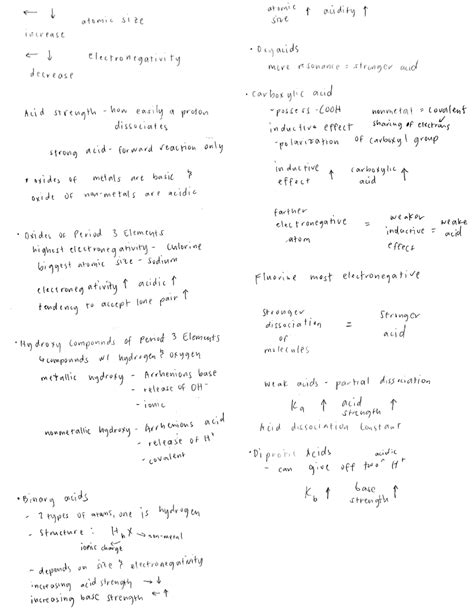 ← ↓ atomic size
increase
← ↓ electronegativity
decrease
Acid strength - how easily a proton
dissociates
strong acid - forward reaction only
* oxides of metals are basic &
oxide of non-metals are acidic
• Oxides of Period 3 Elements
highest electronegativity - Chlorine
biggest atomic size - sodium
electronegativity ↑ acidic ↑
tendency to accept lone pair ↑
• Hydroxy Compounds of Period 3 Elements
compounds w/ hydrogen & oxygen
metallic hydroxy - Arrhenious base
- release of OH⁻
- ionic
nonmetallic hydroxy - Arrhenious acid
- release of H⁺
- covalent
• Binary acids
- 2 types of atoms, one is hydrogen
- Structure: HbX → non-metal
ionic charge
- depends on size & electronegativity
increasing acid strength → ↓
increasing base strength ← ↑
atomic size ↑ acidity ↑
• Oxyacids
more resonance = stronger acid
• Carboxylic acid
- possess -COOH nonmetal = covalent
sharing of electrons
inductive effect
- polarization of carboxyl group
inductive effect ↑ carboxylic acid ↑
farther electronegative atom = weaker inductive effect = weaker acid
Fluorine most electronegative
Stronger dissociation of molecules = Stronger acid
weak acids - partial dissociation
Ka ↑ acid strength ↑
Acid dissociation constant
• Diprotic Acids
- can give off two acidic H⁺
Kb ↑ base strength ↑